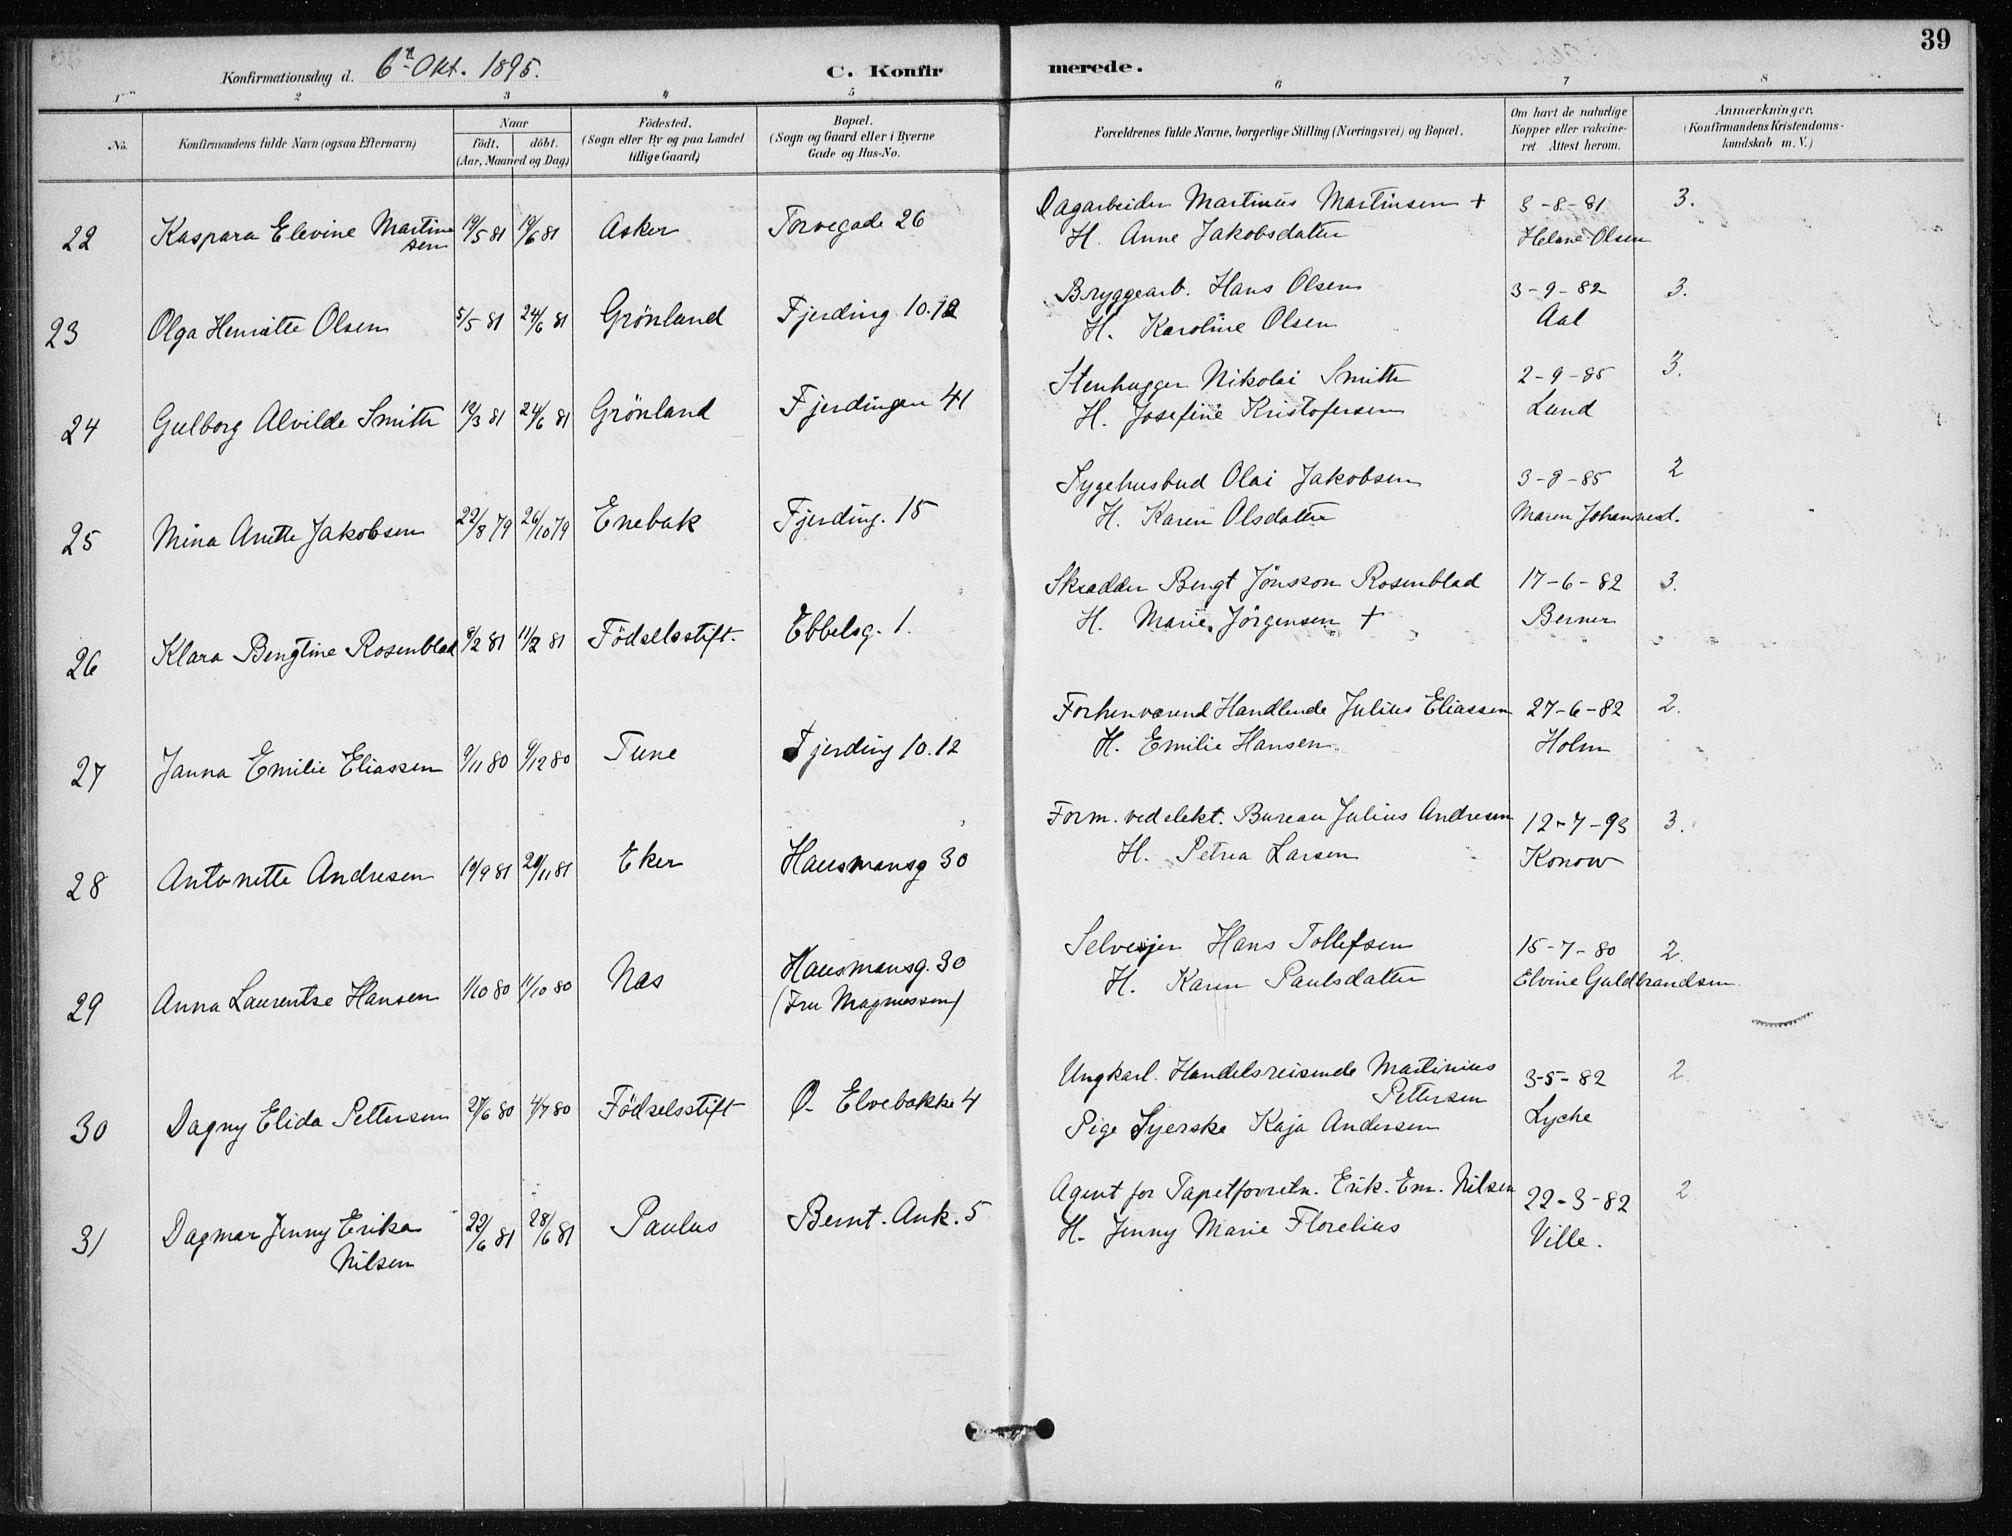 39
Konfirmationsdag d. 6te Okt. 1895.
C. Konfir merede.
1 2 3 4 5 6 7 8
No.
Konfirmandens fulde Navn (ogsaa Efternavn)
Naar
födt. döbt.
(Aar, Maaned og Dag)
Födested.
(Sogn eller By og paa Landet
tillige Gaard)
Bopæl.
(Sogn og Gaard eller i Byerne
Gade og Hus-No.
Forældrenes fulde Navne, borgerlige Stilling (Næringsvei) og Bopæl.
Om havt de naturlige
Kopper eller vakcine-
ret. Attest herom.
Anmærkninger,
(Konfirmandens Kristendoms-
kundskab m. V.)
22 Kaspara Elevine Martinsen 19/5 81 19/6 81 Asker Torvegade 26 Dagarbeider Martinius Martinsen + 3-8-81 3.
H. Anne Jakobsdatter Helene Olsen
23 Olga Henriette Olsen 5/5 81 24/6 81 Grönland Fjerding. 10.12 Bryggearb. Hans Olsen 3-9-82 3.
H. Karoline Olsen Aal
24 Gulborg Alvilde Smith 12/3 81 24/6 81 Grönland Fjerdingen 41 Stenhugger Nikolai Smith 2-9-85 3.
H. Josefine Kristofersen Lund
25 Mina Anette Jakobsen 22/8 79 26/10 79 Enebak Fjerding. 15 Sygehusbud Olai Jakobsen 3-9-85 2
H. Karen Olsdatter Maren Johannesd.
26 Klara Bengtine Rosenblad 8/2 81 11/2 81 Födselsstift. Ebbelsg. 1. Skrædder Bengt Jönsson Rosenblad 17-6-82 3.
H. Marie Jörgensen + Berner
27 Janna Emilie Eliassen 9/11 80 6/12 80 Tune Fjerding 10.12 Forhenværend Handlende Julius Eliassen 27-6-82 2.
H. Emilie Hansen Holm
28 Antonette Andresen 19/9 81 20/11 81 Eker Hausmansg 30 Form. ved elekt. Bureau Julius Andresen 12-7-93 3.
H. Petrea Larsen Konow
29 Anna Laurentse Hansen 1/10 80 11/10 80 Næs Hausmansg. 30 Selveijer Hans Tollefsen 15-7-80 2.
(Fru Magnussen) H. Karen Paulsdatter Elvine Guldbrandsen
30 Dagny Elida Pettersen 27/6 80 4/7 80 Födselsstift Ø. Elvebakke 4 Ungkarl. Handelsreisende Martinius 3-5-82 2.
Pettersen
Pige Syerske Kaja Andersen Lyche
31 Dagmar Jenny Erika 22/6 81 28/6 81 Paulus Bernt. Ank. 5 Agent for Tapetforretn. Erik. Em. Nilsen 22-3-82 2.
Nilsen H. Jenny Marie Florelius Ville.